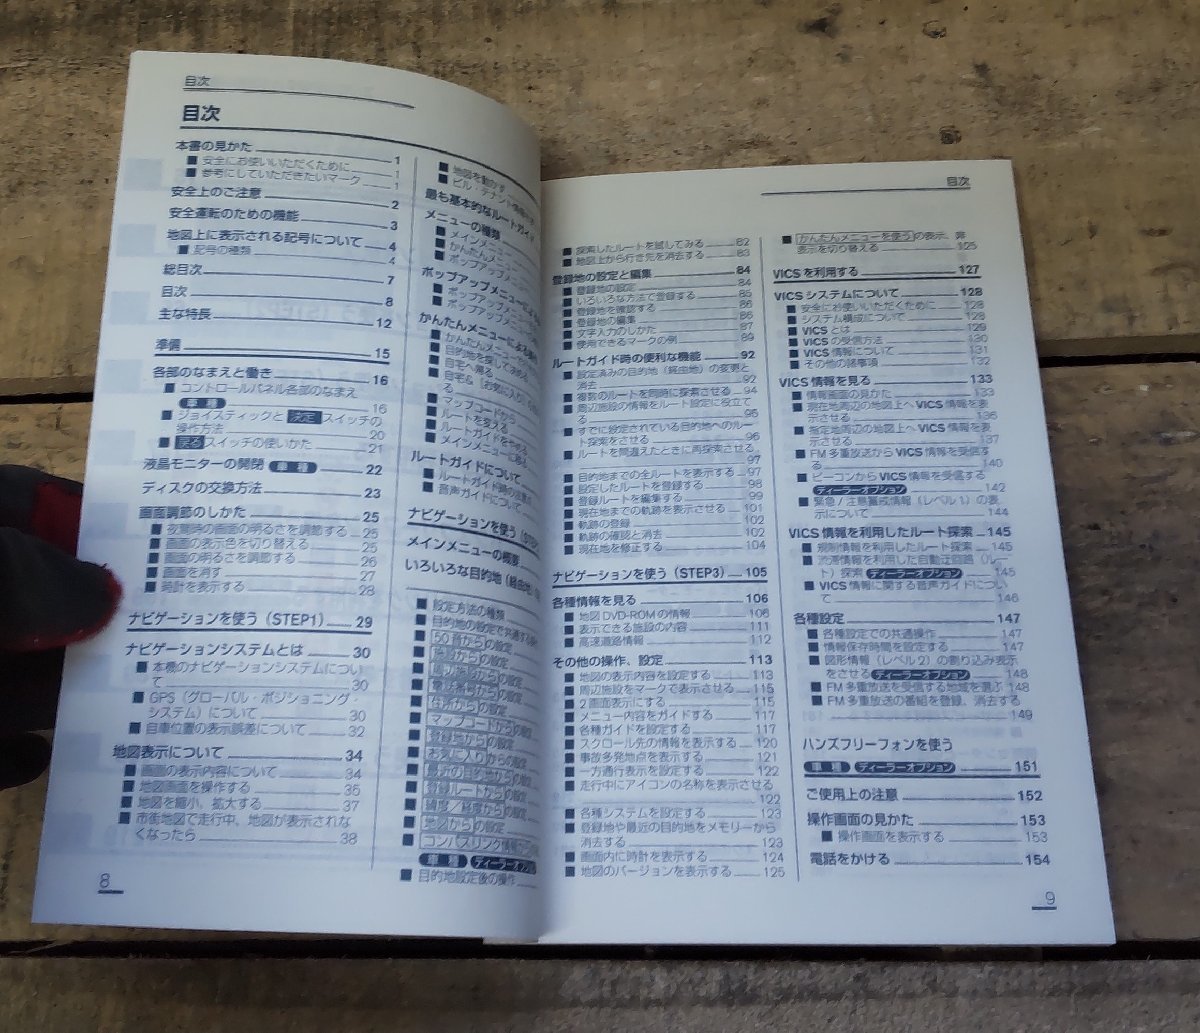 目次
目次
本書の見かた 1
■ 安全にお使いいただくために 1
■ 参考にしていただきたいマーク 1
安全上のご注意 2
安全運転のための機能 3
地図上に表示される記号について 4
■ 記号の種類 4
総目次 7
目次 8
主な特長 12
準備 15
各部のなまえと働き 16
■ コントロールパネル各部のなまえ
車種 16
■ ジョイスティックと 決定 スイッチの
操作方法 20
■ 戻る スイッチの使いかた 21
液晶モニターの開閉 車種 22
ディスクの交換方法 23
画面調節のしかた 25
■ 夜警時の画面の明るさを調節する 25
■ 画面の表示色を切り替える 25
■ 画面の明るさを調節する 26
■ 画面を消す 27
■ 時計を表示する 28
ナビゲーションを使う（STEP1） 29
ナビゲーションシステムとは 30
■ 本機のナビゲーションシステムについ
て 30
■ GPS（グローバル・ポジショニング・
システム）について 30
■ 自車位置の表示誤差について 32
地図表示について 34
■ 画面の表示内容について 34
■ 地図画面を操作する 35
■ 地図を縮小、拡大する 37
■ 市街地図で走行中、地図が表示されな
くなったら 38
8
■ 地図を動かす
■ ビル・テナント情報
最も基本的なルートガイド
メニューの種類
■ メインメニュー
■ かんたんメニュー
■ ポップアップメニュー
ポップアップメニューによる
■ ポップアップ
■ ポップアップメニュー
かんたんメニューによる
■ かんたんメニュー
■ 目的地を探して
■ 自宅へ帰る
■ 自宅&［お気に入り］
る
■ マップコードから
■ ルートを変える
■ ルートガイドをやめる
■ メインメニューに
ルートガイドについて
■ ルートガイド時の注意
■ 音声ガイドについて
ナビゲーションを使う
メインメニューの概要
いろいろな目的地（経由地）
■ 設定方法の種類
■ 目的地の設定で共通する
■ 50音からの設定
■ 施設からの設定
■ 周辺施設からの設定
■ 電話番号からの設定
■ 住所からの設定
■ マップコードからの設定
■ 登録地からの設定
■ お気に入りからの設定
■ 最近の目的地からの設定
■ 登録ルートからの設定
■ 緯度／経度からの設定
■ 地図からの設定
■ コンパスリンク情報
車種 ディーラーオプション
■ 目的地設定後の操作
目次
■ 探索したルートを試してみる 82
■ 地図上から行き先を消去する 83
登録地の設定と編集 84
■ 登録地の設定 84
■ いろいろな方法で登録する 85
■ 登録地を確認する 86
■ 登録地の編集 86
■ 文字入力のしかた 87
■ 使用できるマークの例 89
ルートガイド時の便利な機能 92
■ 設定済みの目的地（経由地）の変更と
消去 92
■ 複数のルートを同時に探索させる 94
■ 周辺施設の情報をルート設定に役立て
る 95
■ すでに設定されている目的地へのルー
ト探索をさせる 96
■ ルートを間違えたときに再探索させる
97
■ 目的地までの全ルートを表示する 97
■ 設定したルートを登録する 98
■ 登録ルートを編集する 99
■ 現在地までの軌跡を表示させる 101
■ 軌跡の登録 102
■ 軌跡の確認と消去 102
■ 現在地を修正する 104
ナビゲーションを使う（STEP3） 105
各種情報を見る 106
■ 地図 DVD-ROM の情報 106
■ 表示できる施設の内容 111
■ 高速道路情報 112
その他の操作、設定 113
■ 地図の表示内容を設定する 113
■ 周辺施設をマークで表示させる 115
■ 2画面表示にする 115
■ メニュー内容をガイドする 117
■ 各種ガイドを設定する 117
■ スクロール先の情報を表示する 120
■ 事故多発地点を表示する 121
■ 一方通行表示を設定する 122
■ 走行中にアイコンの名称を表示させる
122
■ 各種システムを設定する 123
■ 登録地や最近の目的地をメモリーから
消去する 123
■ 画面内に時計を表示する 124
■ 地図のバージョンを表示する 125
■ かんたんメニューを使うの表示、非
表示を切り替える 125
VICS を利用する 127
VICS システムについて 128
■ 安全にお使いいただくために 128
■ システム構成について 128
■ VICS とは 129
■ VICS の受信方法 130
■ VICS 情報について 131
■ その他の諸事項 132
VICS 情報を見る 133
■ 情報画面の見かた 133
■ 現在地周辺の地図上へ VICS 情報を表
示させる 136
■ 指定地周辺の地図上へ VICS 情報を表
示させる 137
■ FM 多重放送から VICS 情報を受信す
る 140
■ ビーコンから VICS 情報を受信する
ディーラーオプション 142
■ 緊急／注意警戒情報（レベル1）の表
示について 144
VICS 情報を利用したルート探索 145
■ 規制情報を利用したルート探索 145
■ 渋滞情報を利用した自動迂回路（ルー
ト）探索 ディーラーオプション 145
■ VICS 情報に関する音声ガイドについ
て 146
各種設定 147
■ 各種設定での共通操作 147
■ 情報保存時間を設定する 147
■ 図形情報（レベル2）の割り込み表示
をさせる ディーラーオプション 148
■ FM 多重放送を受信する地域を選ぶ 148
■ FM 多重放送の番組を登録、消去する
149
ハンズフリーフォンを使う
車種 ディーラーオプション 151
ご使用上の注意 152
操作画面の見かた 153
■ 操作画面を表示する 153
電話をかける 154
9